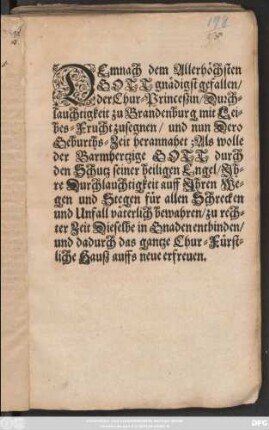 DEmnach dem Allerhöchsten
GOTT gnädigst gefallen/
der Chur-Princeßin/Durch-
lauchtigkeit zu Brandenburg mit Lei-
bes-Frucht zusegnen/ und nun Dero
Geburths-Zeit herannahet: Als wolle
der Barmhertzige GOTT durch
den Schutz seiner heiligen Engel/Ih-
re Durchlauchtigkeit auff Ihren We-
gen und Stegen für allen Schrecken
und Unfall väterlich bewahren/zu rech-
ter Zeit Dieselbe in Gnaden entbinden/
und dadurch das gantze Chur-Fürst-
liche Hauß auffs neue erfreuen.